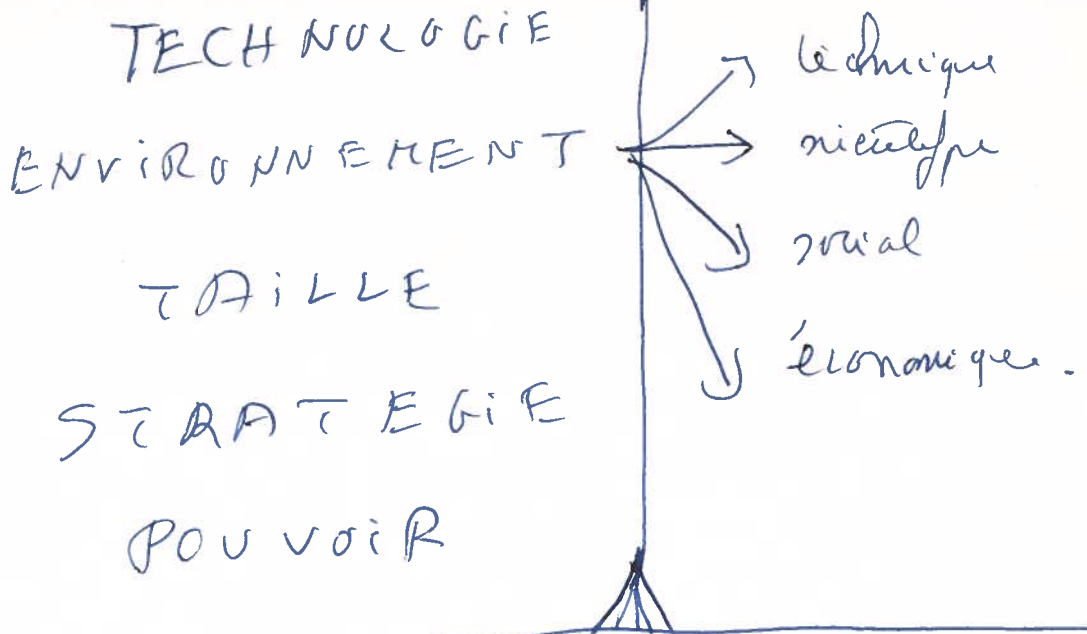 TECHNOLOGIE
ENVIRONNEMENT
TAILLE
STRATEGIE
POUVOIR
technique
social
économique.